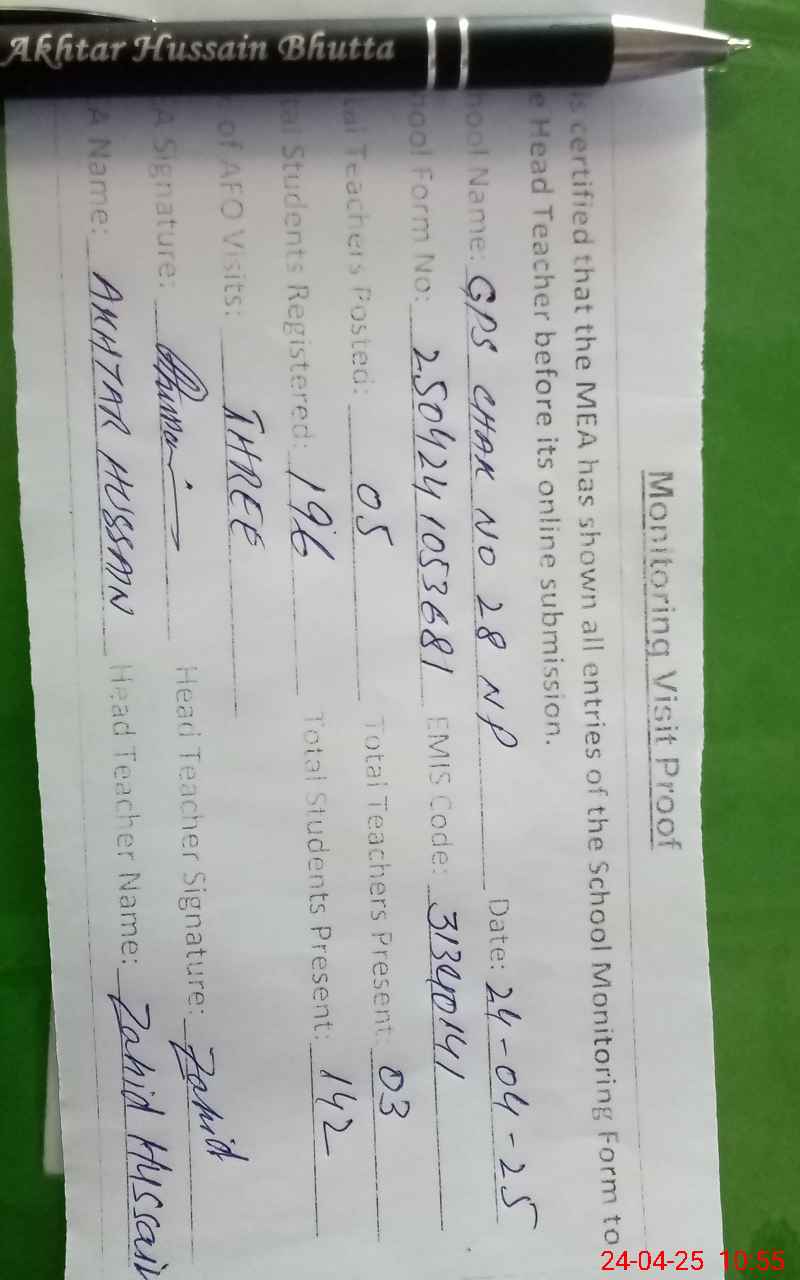 Akhtar Hussain Bhutta
Monitoring Visit Proof
is certified that the MEA has shown all entries of the School Monitoring Form to
e Head Teacher before its online submission.
hool Name: GPS CHAK NO 28 NP Date: 24-04-25
hool Form No: 250424 1053681 EMIS Code: 31340141
tal Teachers Posted: 05 Total Teachers Present: 03
tal Students Registered: 196 Total Students Present: 142
of AFO Visits: THREE
A Signature: Head Teacher Signature: Zahid
A Name: AKHTAR HUSSAIN Head Teacher Name: Zahid Hussain
24-04-25 10:55